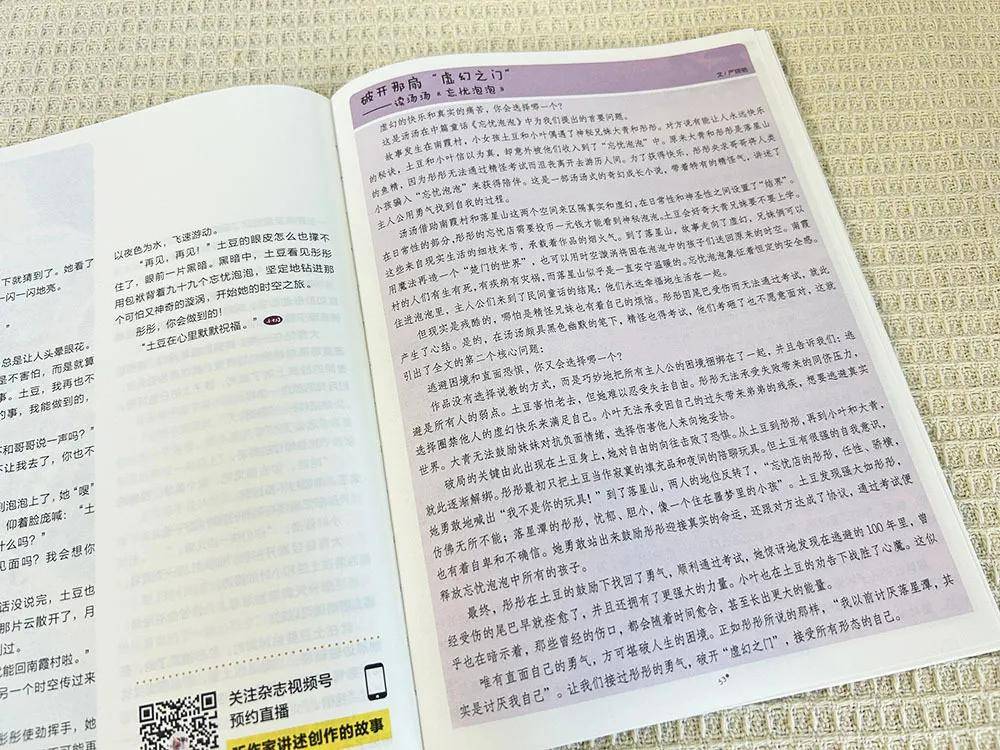 下就猜到了。她看了
一闪一闪地亮。
总是让人头晕眼花。
是不害怕，而是就算
事。土豆，我再也不
的事，我能做到的，
不和哥哥说一声吗？”
不让我去了，你也不
到泡泡上了，她“嗖”
仰着脸庞喊：“土
什么吗？”
见面吗？我会想你
话没说完，土豆也
那片云散开了，月
到过。
就能回南霞村啦。”
另一个时空传过来
彤彤使劲挥手，她
以夜色为水，飞速游动。
“再见，再见！”土豆的眼皮怎么也撑不
住了，眼前一片黑暗。黑暗中，土豆看见彤彤
用包袱背着九十九个忘忧泡泡，坚定地钻进那
个可怕又神奇的漩涡，开始她的时空之旅。
彤彤，你会做到的！
“土豆在心里默默祝福。”
关注杂志视频号
预约直播
听作家讲述创作的故事
破开那扇“虚幻之门”
——读汤汤《忘忧泡泡》
虚幻的快乐和真实的痛苦，你会选择哪一个？
这是汤汤在中篇童话《忘忧泡泡》中为我们提出的首要问题。
故事发生在南霞村，小女孩土豆和小叶偶遇了神秘兄妹大青和彤彤。对方说有能让人永远快乐
的秘诀，土豆和小叶信以为真，却意外被他们收入到了“忘忧泡泡”中。原来大青和彤彤是落星山
的鱼精，因为彤彤无法通过精怪考试而沮丧离开去游历人间。为了获得快乐，彤彤央求哥哥将人类
小孩骗入“忘忧泡泡”来获得陪伴。这是一部汤汤式的奇幻成长小说，带着特有的精怪气，讲述了
主人公用勇气找到自我的过程。
汤汤借助南霞村和落星山这两个空间来区隔真实和虚幻，在日常性和神圣性之间设置了“结界”。
在日常性的部分，彤彤的忘忧店需要投币一元钱才能看到神秘泡泡，土豆会好奇大青兄妹要不要上学。
这些来自现实生活的细枝末节，承载着作品的烟火气。到了落星山，故事走向了虚幻，兄妹俩可以
用魔法再造一个“楚门的世界”，也可以用时空漩涡将困在泡泡中的孩子们送回原来的时空。南霞
村的人们有生有死，有疾病有灾祸，而落星山似乎是一直安宁温暖的。忘忧泡泡象征着恒定的安全感。
住进泡泡里，主人公们来到了民间童话的结尾：他们永远幸福地生活在一起。
但现实是残酷的，哪怕是精怪兄妹也有着自己的烦恼。彤彤因尾巴受伤而无法通过考试，就此
产生了心结。是的，在汤汤颇具黑色幽默的笔下，精怪也得考试，他们考砸了也不愿意面对，这就
引出了全文的第二个核心问题：
逃避困境和直面恐惧，你又会选择哪一个？
作品没有选择说教的方式，而是巧妙地把所有主人公的困境捆绑在了一起，并且告诉我们：逃
避是所有人的弱点。土豆害怕老去，但她难以忍受失去自由。彤彤无法承受失败带来的同侪压力，
选择圈禁他人的虚幻快乐来满足自己。小叶无法承受因自己的过失带来弟弟的残疾，想要逃避真实
世界。大青无法鼓励妹妹对抗负面情绪，选择伤害他人来向她妥协。
破局的关键由此出现在土豆身上，她对自由的向往击败了恐惧。从土豆到彤彤，再到小叶和大青，
就此逐渐解绑。彤彤最初只把土豆当作寂寞的填充品和夜间的陪聊玩具。但土豆有很强的自我意识，
她勇敢地喊出“我不是你的玩具！”到了落星山，两人的地位反转了，“忘忧店的彤彤，任性、骄横，
仿佛无所不能；落星潭的彤彤，忧郁、胆小，像一个住在噩梦里的小孩”。土豆发现强大如彤彤，
也有着自卑和不确信。她勇敢站出来鼓励彤彤迎接真实的命运，还跟对方达成了协议，通过考试便
释放忘忧泡泡中所有的孩子。
最终，彤彤在土豆的鼓励下找回了勇气，顺利通过考试，她惊讶地发现在逃避的100年里，曾
经受伤的尾巴早就痊愈了，并且还拥有了更强大的力量。小叶也在土豆的劝告下战胜了心魔。这似
乎也在暗示着，那些曾经的伤口，都会随着时间愈合，甚至长出更大的能量。
唯有直面自己的勇气，方可堪破人生的困境。正如彤彤所说的那样，“我以前讨厌落星潭，其
实是讨厌我自己”。让我们接过彤彤的勇气，破开“虚幻之门”，接受所有形态的自己。
53